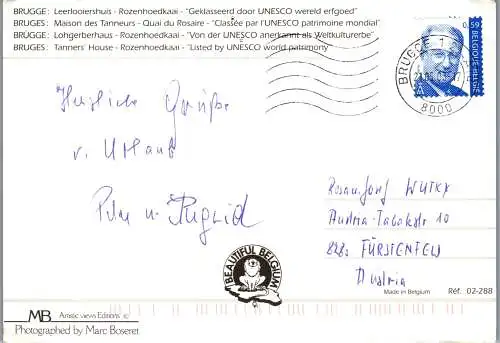 BRUGGE: Leerlooiershuis - Rozenhoedkaai - "Geklasseerd door UNESCO wereld erfgoed"
BRUGES: Maison des Tanneurs - Quai du Rosaire - "Classée par l'UNESCO patrimoine mondial"
BRÜGGE: Lohgerberhaus - Rozenhoedkaai - "Von der UNESCO anerkannt als Weltkulturerbe"
BRUGES: Tanners' House - Rozenhoedkaai - "Listed by UNESCO world patrimony"
0,59
BELGIQUE-BELGIE
BRUGGE 1
8000
Herzliche Grüße
v. Urlaub
u. Sigrid
Josef WUTKY
Austria-Tabakstr 10
8280 FÜRSTENFELD
Austria
BEAUTIFUL BELGIUM
Made in Belgium
Réf. 02-288
MB Artistic views Editions ©
Photographed by Marc Boseret